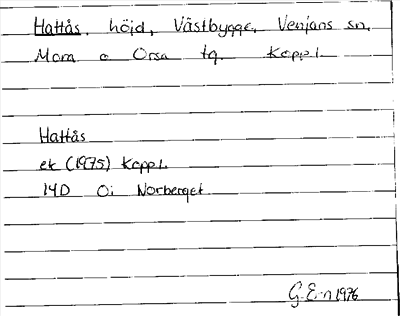 Hattås, höjd, Västbygge, Venjans sn,
Mora o Orsa tg. Koppl.
Hattås
ek (1975) Koppl.
14D Oi Norberget
G.E-n 1976